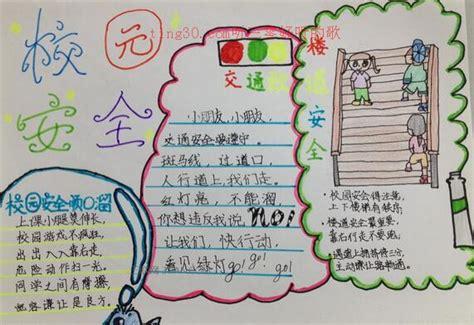 校园
安全
ting30.com
校园安全顺口溜
上课小腿莫伸长
校园游戏不疯狂，
出出入入靠右走，
危险动作扫一光。
同学之间有摩擦，
谦让是良方。
交通
小朋友，小朋友，
交通安全要遵守。
斑马线，过道口，
人行道上我们走。
红灯亮，不能溜，
你想违反我说 NO!
让我们，快行动，
看见绿灯go! go! go!
楼道安全
校园安会得注意，
上下楼梯有秩序。
楼道安全最重要，
靠右行走不要跑。
遇道上拥挤得三分，
主动谦让路畅通。